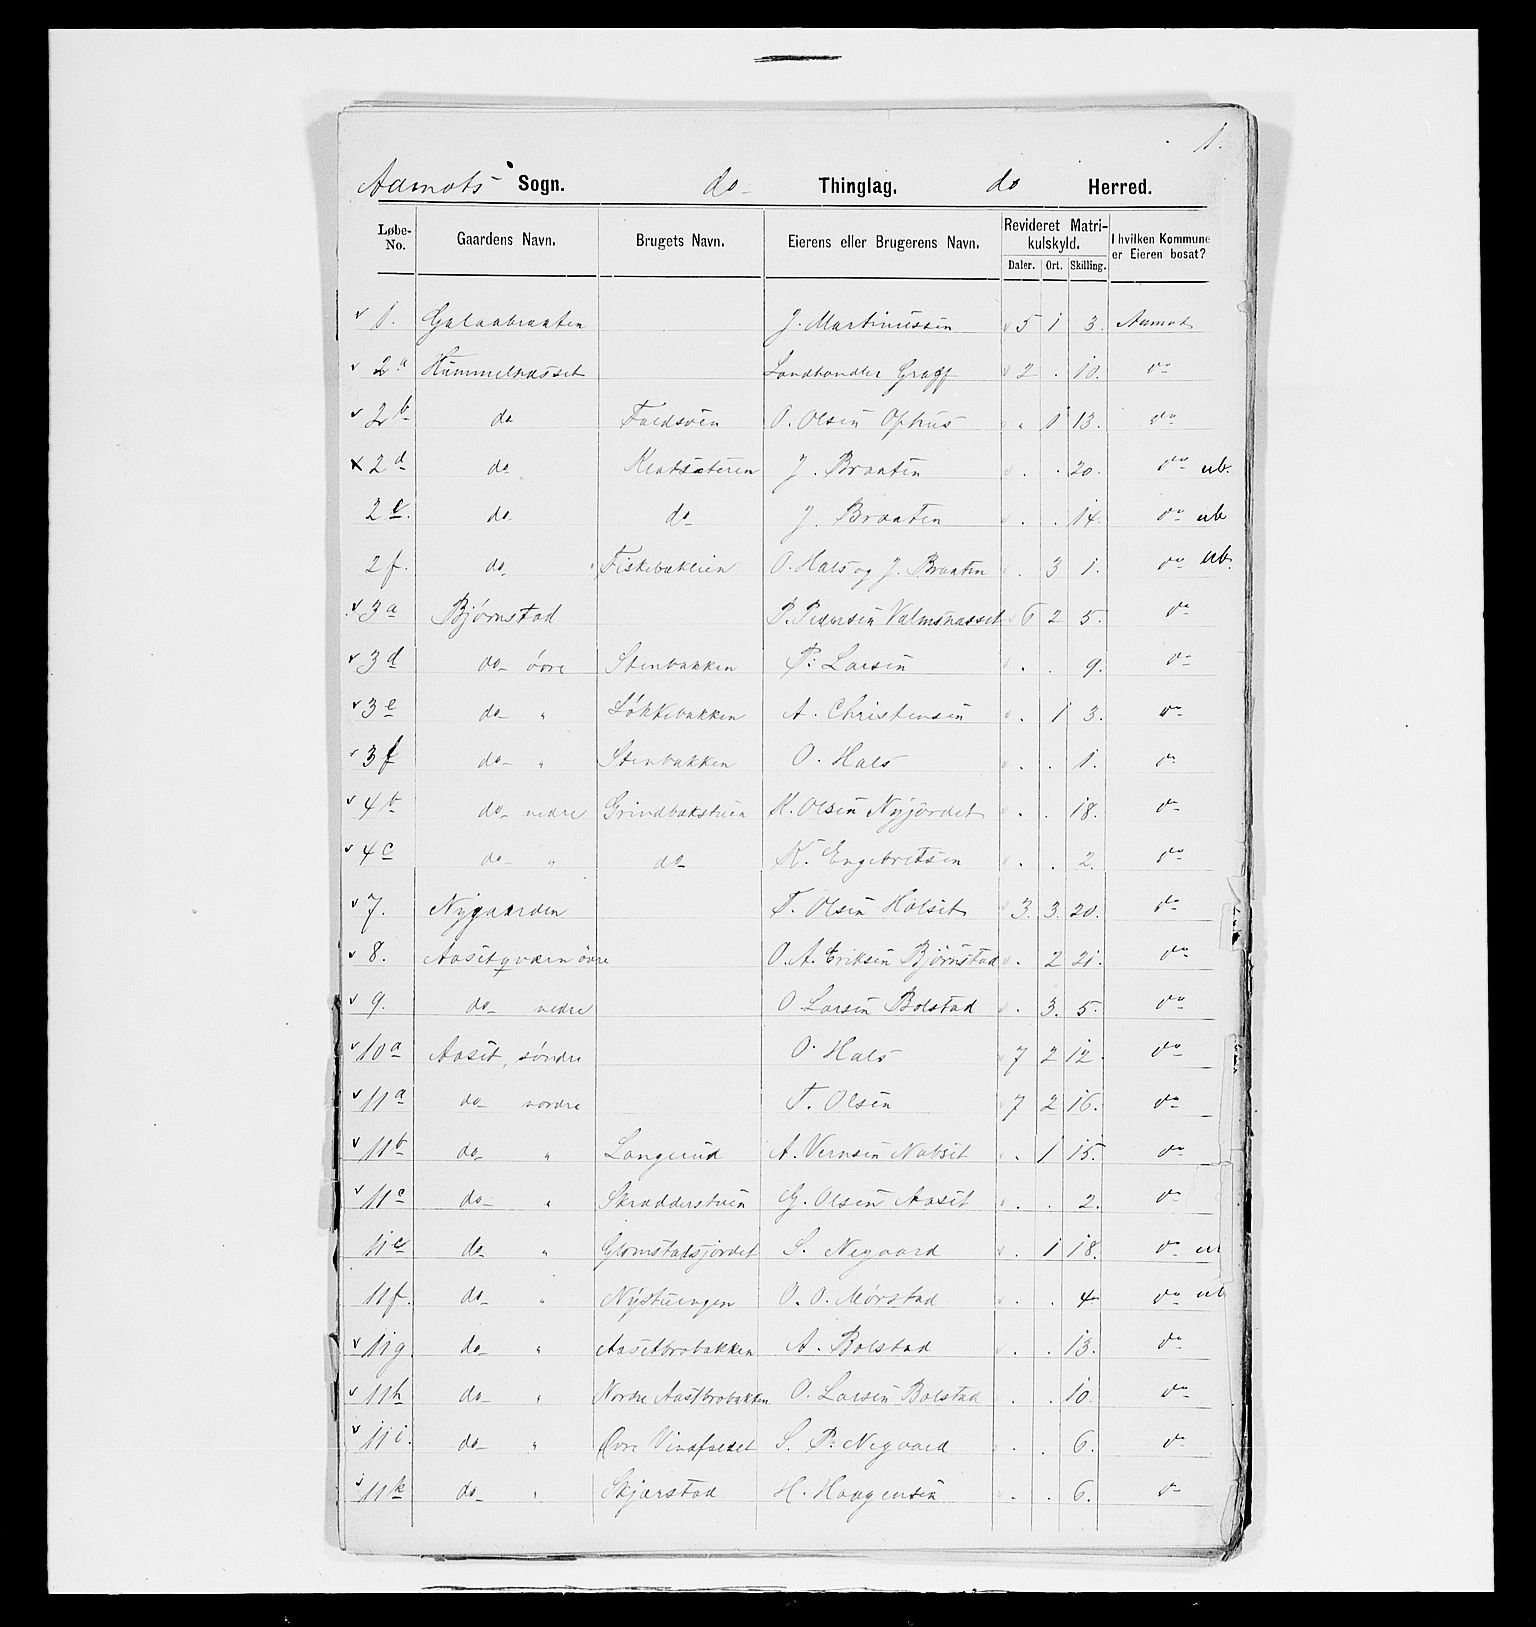 1.
Aamots Sogn. do Thinglag. do Herred.
Løbe-No. Gaardens Navn. Brugets Navn. Eierens eller Brugerens Navn. Revideret Matrikulskyld. I hvilken Kommune er Eieren bosat?
Daler. Ort. Skilling.
v 1. Galaabraaten J. Martinussen v 5 1 3. Aamot
v 2a Hummelnæsset Landhandler Graff v 2 . 10. do
v 2b do Faldsveen O. Olsen Ophus " 1 13. do
x 2d do Kratsæteren J. Braaten . . 20. do ub.
2e. do do J. Braaten . . 14. do ub
2f. do Fiskebæklien O. Hals og J. Braaten . 3 1. do ub.
v 3a Bjørnstad P. Pedersen Valmsnæsset v 6 2 5. do
v 3d do øvre Stenbakken P. Larsen . . 9. do
v 3e do " Løkkebakken A. Christensen . 1 3. do
v 3f do " Stenbakken O. Hals . . 1. do
v 4b do nedre Grindbakstuen K. Olsen Nyjordet . . 18. do
v 4c do " do K. Engebretsen . . 2. do
v 7. Nygaarden T. Olsen Holset v 3. 3. 20. do
v 8. Aasetqværn øvre O. A. Eriksen Bjørnstad . 2 21. do
v 9. do nedre O Larsen Bolstad . 3. 5. do
v 10a Aaset, søndre O. Hals 7 2 12. do
v 11a do nordre T. Olsen 7 2 16. do
v 11b do " Langrud A. Vernsen Nabset . 1 15. do
v 11c do " Skrædderstuen G. Olsen Aaset . . 2. do
11e do " Glomstadsjordet S. Negaard v . 1 18. do ub
11f. do " Nystuengen O. O. Mørstad . . 4 do ub
v 11g do " Aasetbrobakken A. Bolstad . . 13. do
v 11h do " Nordre Aastbrobakken O. Larsen Bolstad . . 10. do
v 11i. do " Øvre Vindfaldet S. P. Negaard . . 6. do
v 11k do " Skjærstad H. Haagensen . . 6. do